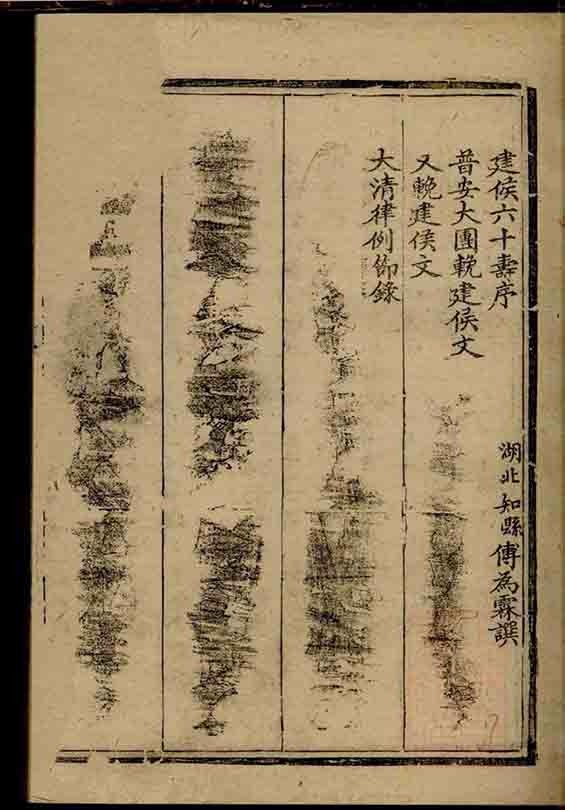 建侯六十壽序
湖北知縣傅為霖譔
普安大團輓建侯文
又輓建侯文
大清律例節錄